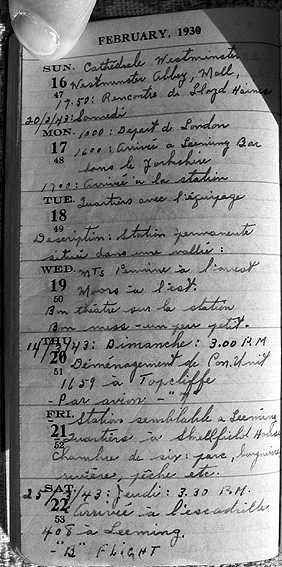 FEBRUARY, 1930
SUN. Cathédale Westminster
16 Westminster Abbey, Mall,
47 17.50: Rencontre de Lloyd Haines
20/2/43: Samedi
MON. 1000: Départ de London
17 1600: Arrivée a Leeming Bar
48 dans le Yorkshire
1700: Arrivée à la station
TUE. Quartiers avec l'équipage
18
49
Description: Station permanente
située dans une vallée:
WED. MTs Pennine à l'ouest
19 Moors à l'est.
50 Bon théâtre sur la station
Bon mess - un peu petit.
THU. 14/3/43: Dimanche: 3.00 P.M
20 Déménagement de Con. Unit
51 1659 à Topcliffe
- Par avion -
FRI. - Station semblable a Leeming
21 - Quartiers à Skellfield House
52 Chambre de six: parc,
rivière, pêche etc.
SAT. 25/ /43: Jeudi: 3.30 P.M.
22 arrivée à l'escadrille
53 408 à Leeming.
- "B" FLIGHT